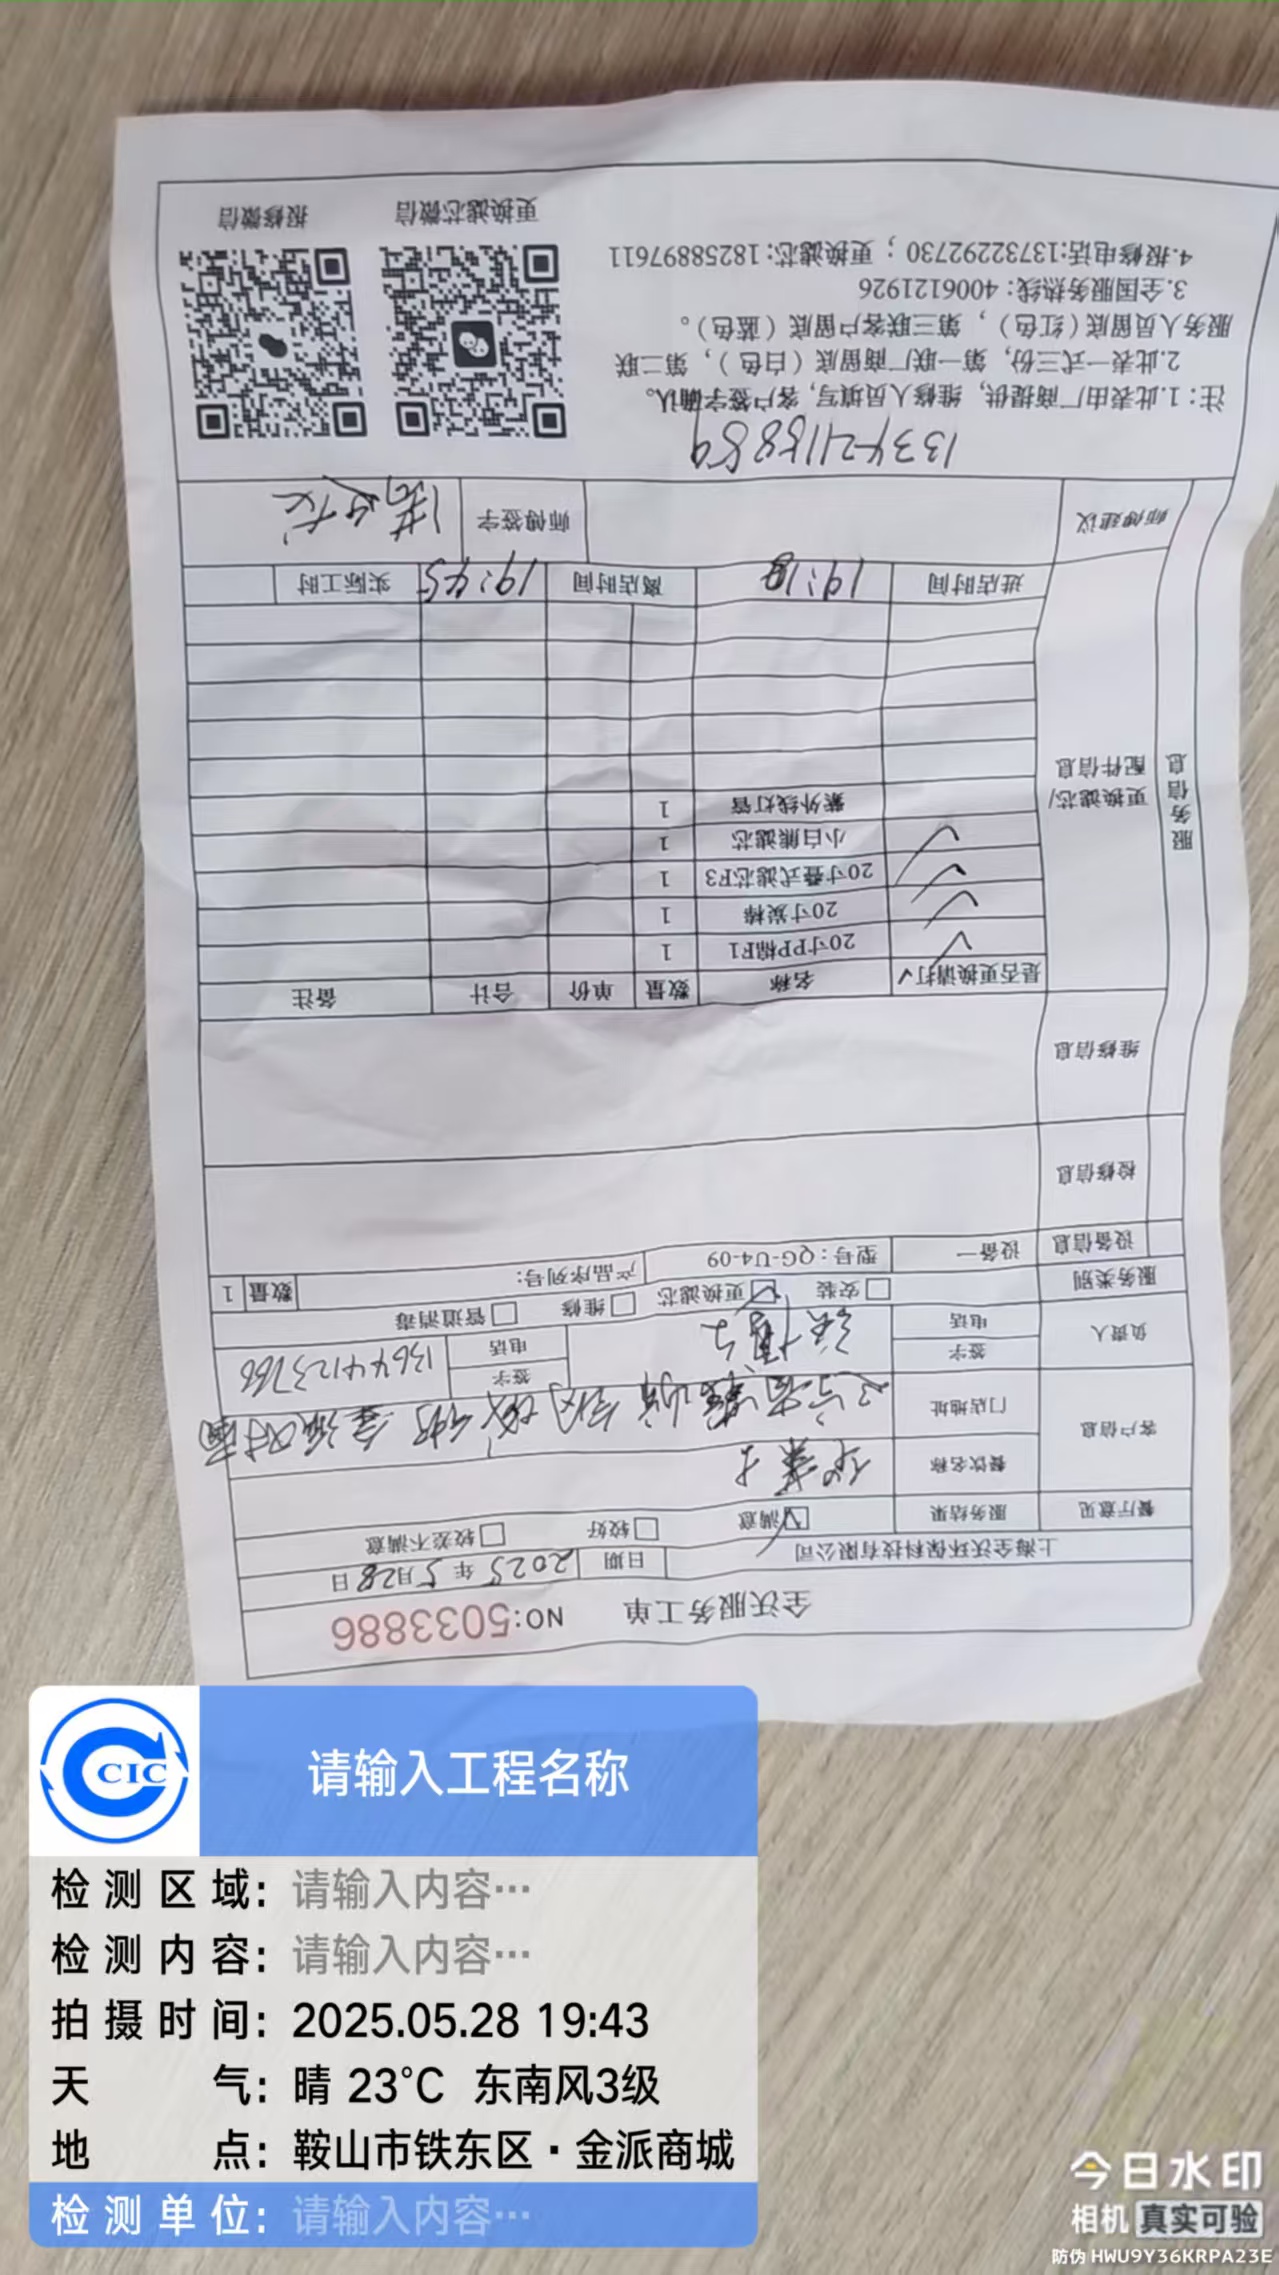 全沃服务工单 NO:5033886
上海全沃环保科技有限公司 日期 2025年5月28日
餐厅意见 服务结果 满意 较好 较差不满意
客户信息 餐饮名称
门店地址
负责人 签字 签字
电话 电话 13644123766
服务类别 安装 更换滤芯 维修 管道消毒
设备信息 设备一 型号：QG-U4-09 产品序列号： 数量 1
检修信息
维修信息
服务信息
更换滤芯/配件信息
是否更换请打✓ 名称 数量 单价 合计 备注
✓ 20寸PP棉F1 1
✓ 20寸炭棒 1
✓ 20寸叠式滤芯F3 1
✓ 小白熊滤芯 1
紫外线灯管 1
进店时间 19:18 离店时间 19:45 实际工时
师傅建议 师傅签字
13342118889
注：1.此表由厂商提供，维修人员填写，客户签字确认。
2.此表一式三份，第一联厂商留底（白色），第二联
服务人员留底（红色），第三联客户留底（蓝色）。
3.全国服务热线：4006121926
4.报修电话:13732292730；更换滤芯：18258897611
更换滤芯微信 报修微信
CIC
请输入工程名称
检测区域：请输入内容…
检测内容：请输入内容…
拍摄时间：2025.05.28 19:43
天气：晴 23℃ 东南风3级
地点：鞍山市铁东区·金派商城
检测单位：请输入内容…
今日水印
相机 真实可验
防伪 HWU9Y36KRPA23E